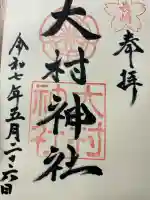 奉拝
大村神社
大村
神社
令和七年五月二十六日